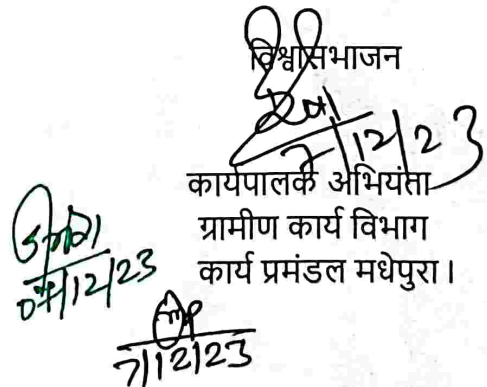 विश्वासभाजन
7/12/23
कार्यपालक अभियंता
ग्रामीण कार्य विभाग
कार्य प्रमंडल मधेपुरा।
07/12/23
7/12/23